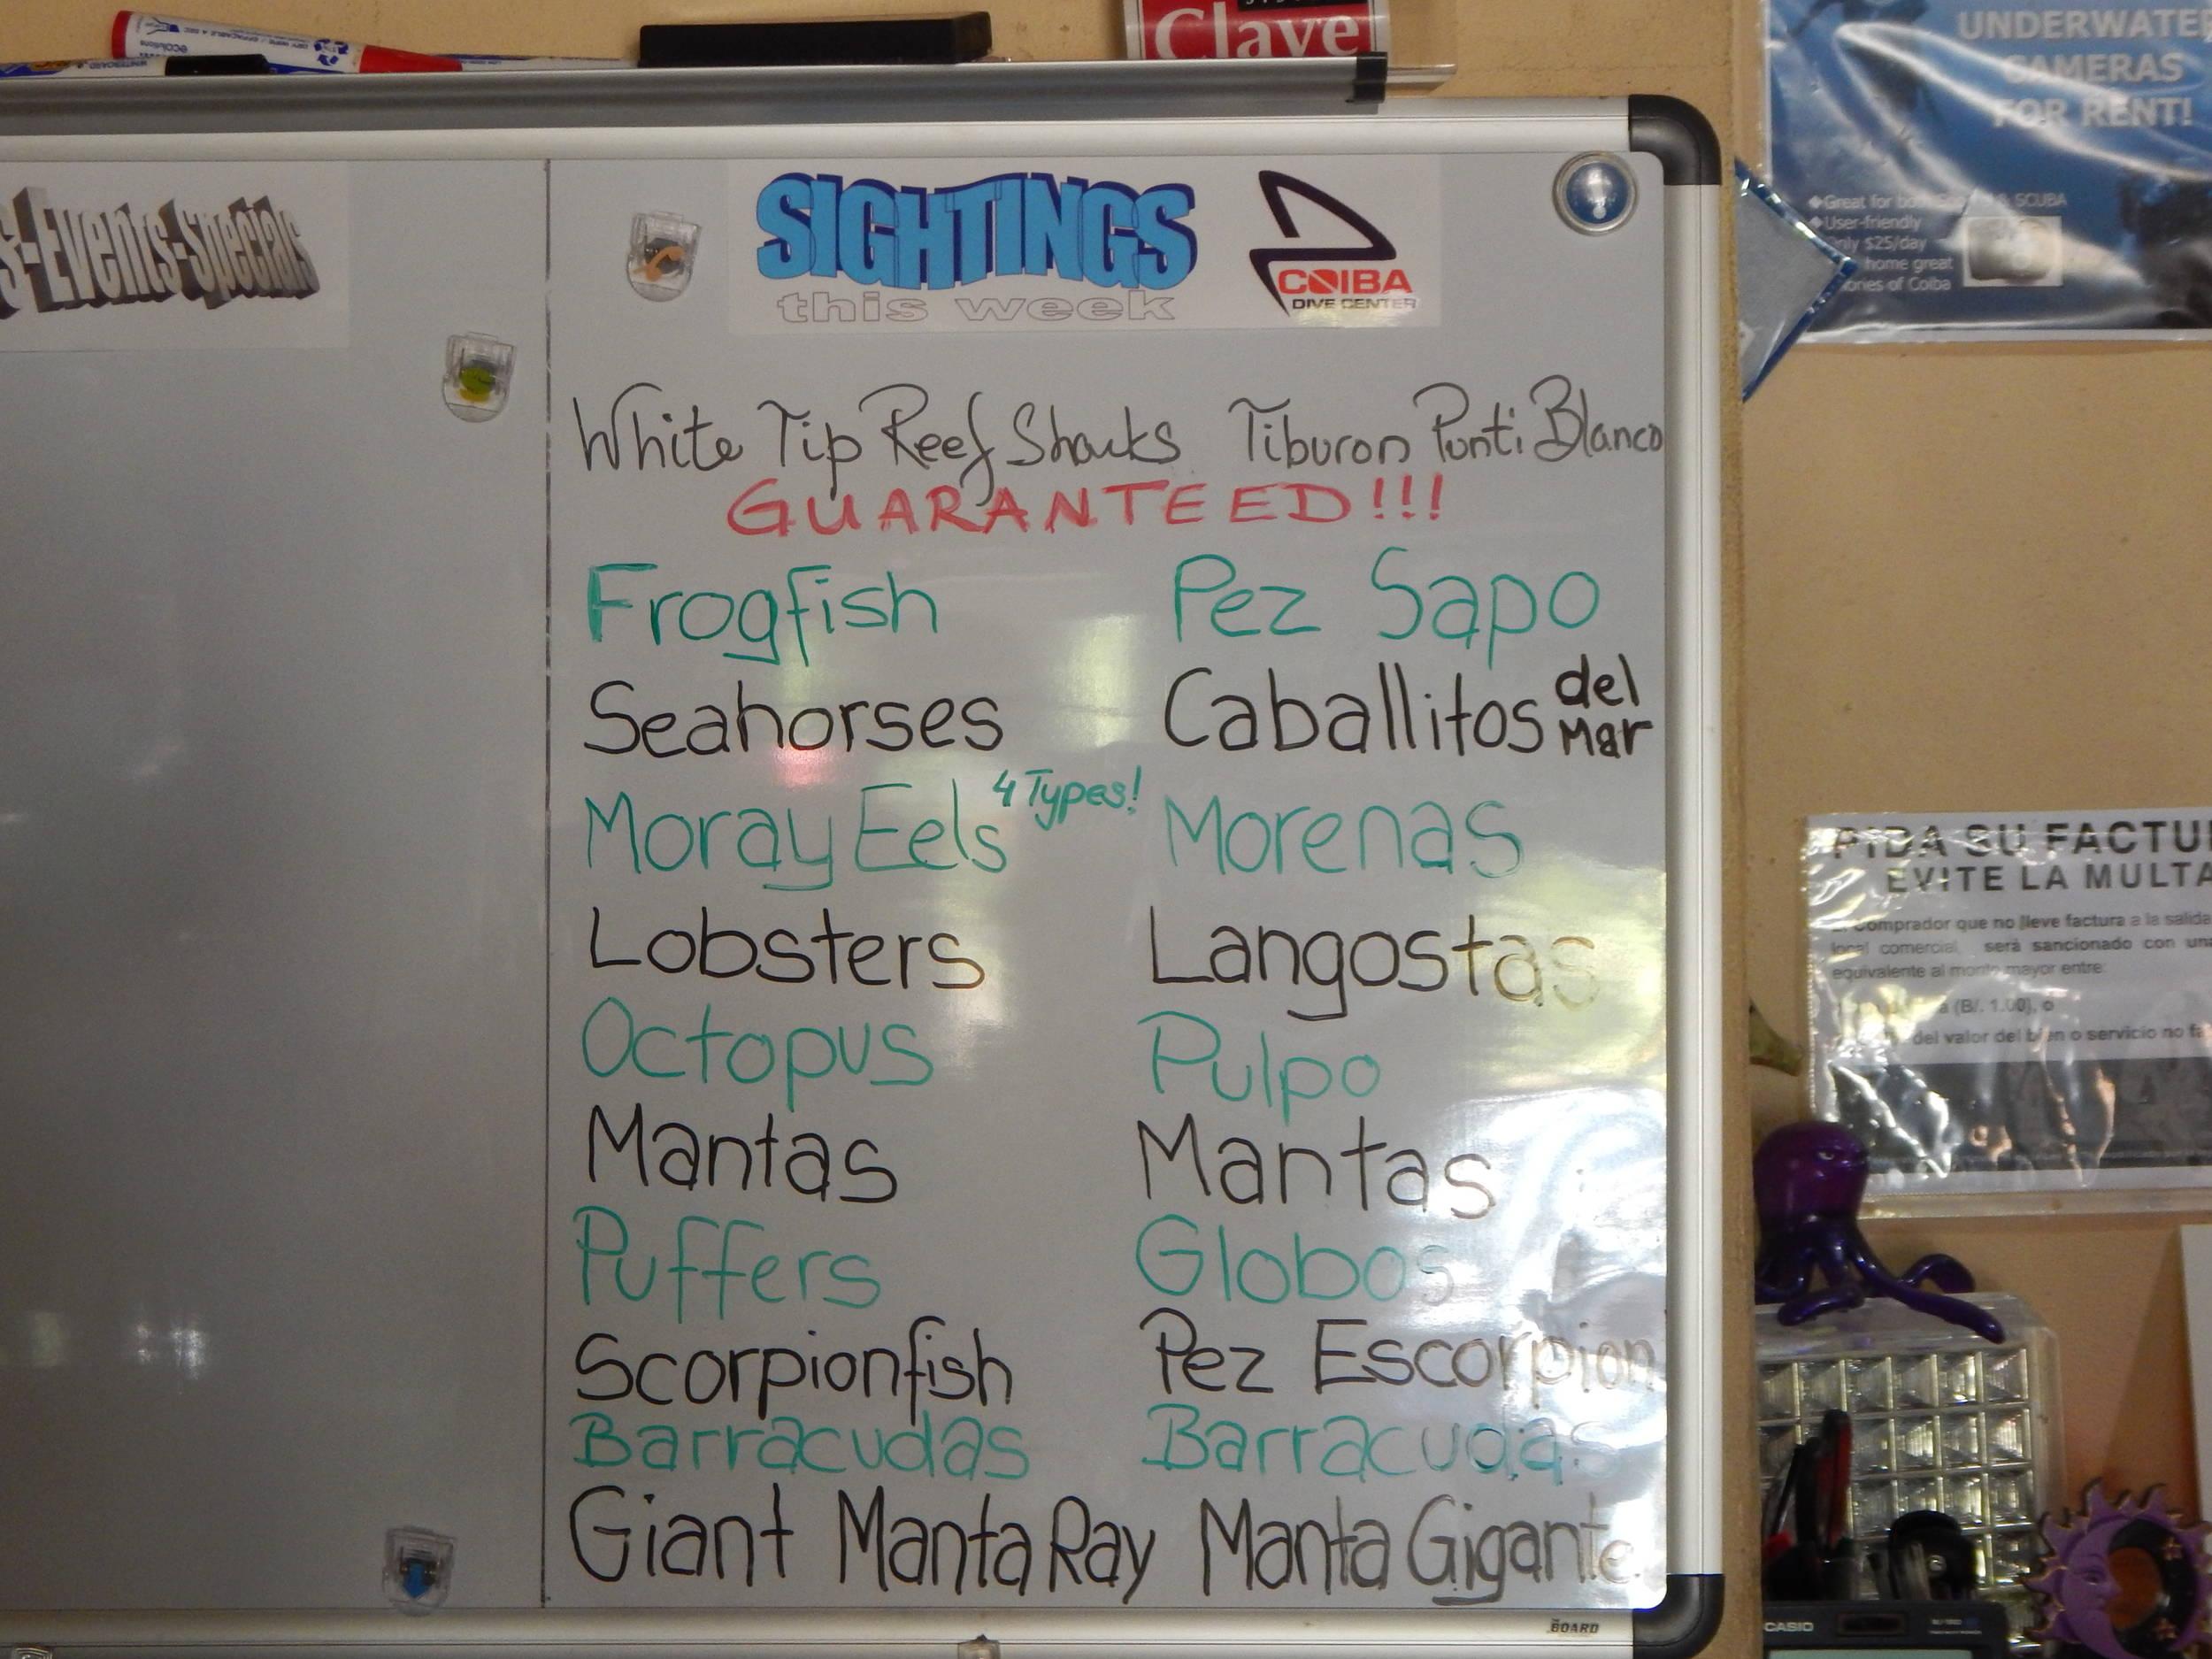 Clave
UNDERWATER
CAMERAS
FOR RENT!
SCUBA
User-friendly
$25/day
home great
of Coiba
-Events-Specials
SIGHTINGS
this week
COIBA
DIVE CENTER
White Tip Reef Sharks Tiburon Punti Blanco
GUARANTEED!!!
Frogfish Pez Sapo
Seahorses Caballitos del Mar
Moray Eels 4 Types! Morenas
Lobsters Langostas
Octopus Pulpo
Mantas Mantas
Puffers Globos
Scorpionfish Pez Escorpion
Barracudas Barracudas
Giant Manta Ray Manta Gigante
BOARD
PIDA SU
EVITE LA MULTA
comprador que no lleve factura a la salida
comercial será sancionado con una
equivalente al monto mayor entre:
(B/. 1.00), o
del valor del bien o servicio no
CASIO